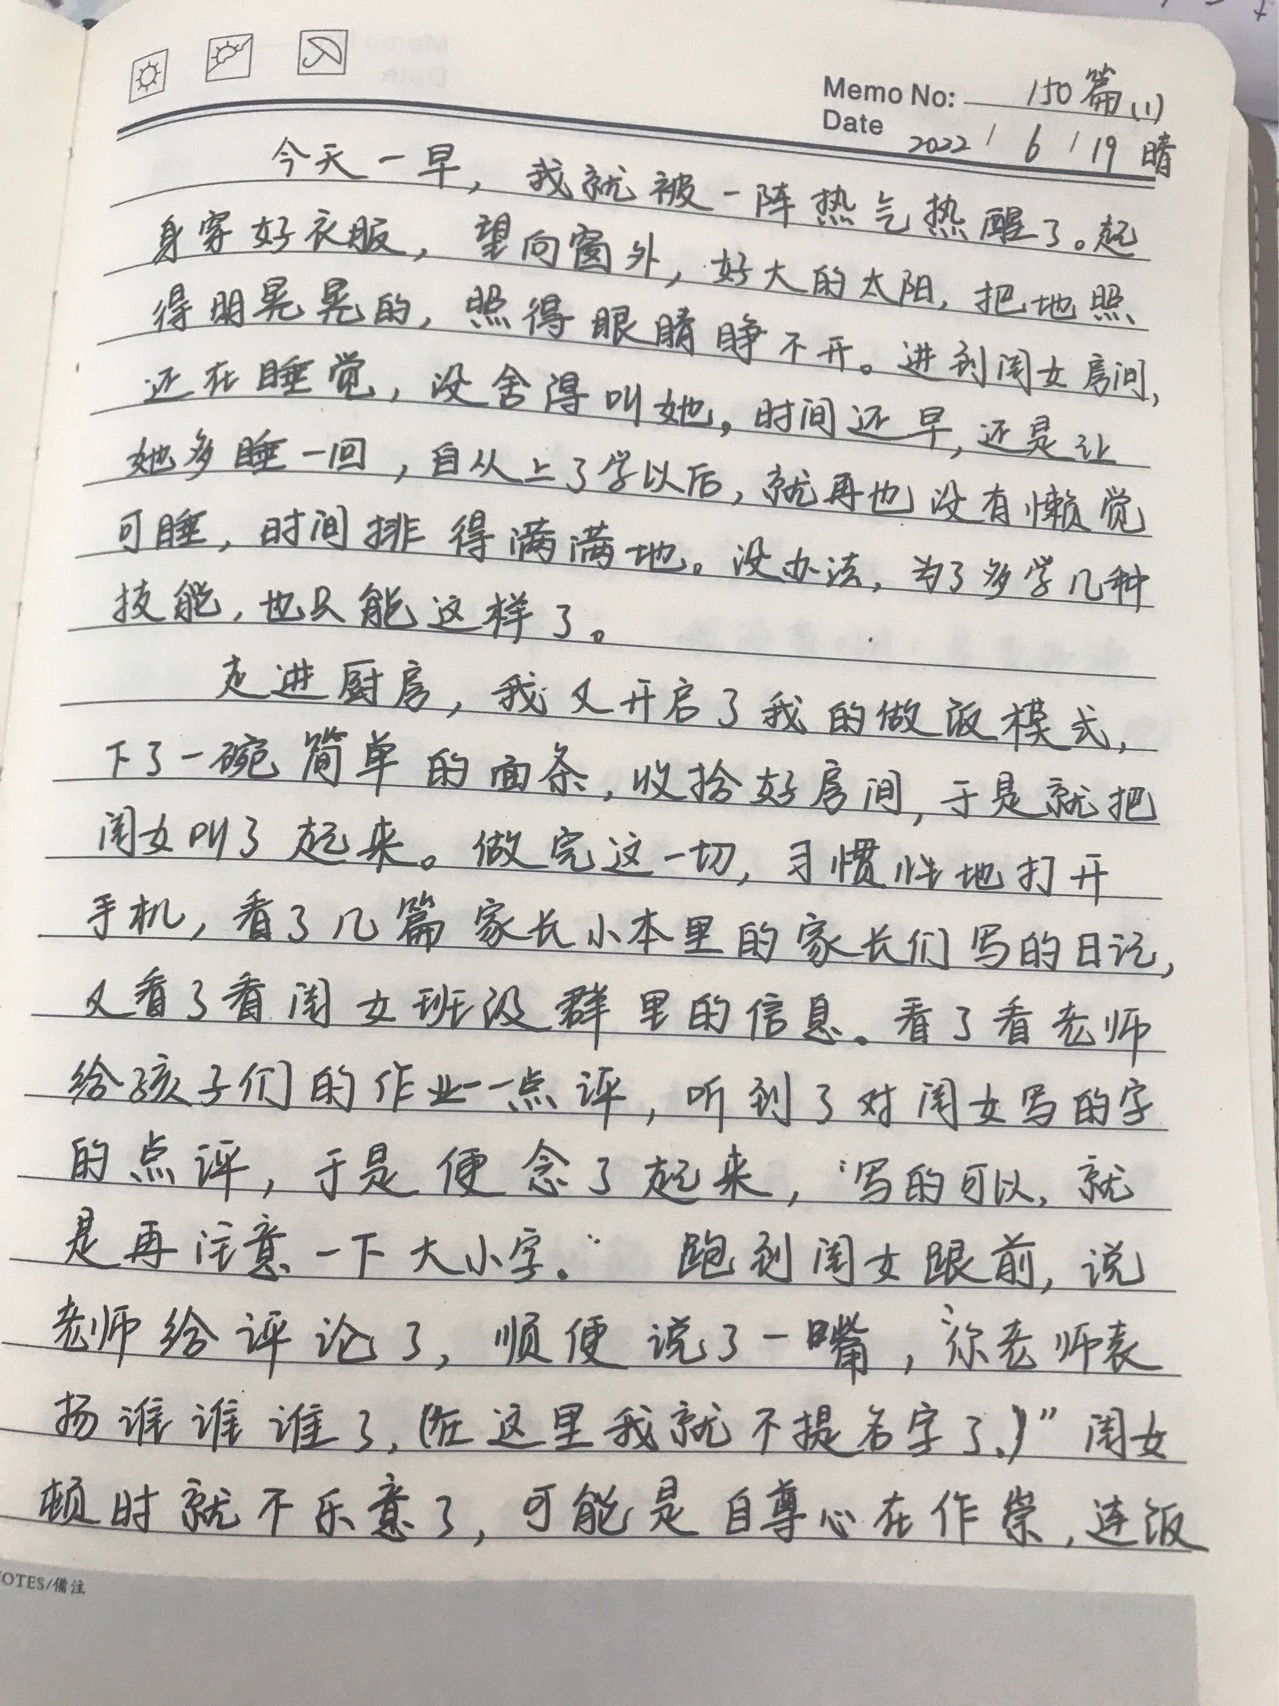 Memo No: 150篇(1)
Date 2022/6/19 晴
今天一早，我就被一阵热气热醒了。起
身穿好衣服，望向窗外，好大的太阳，把地照
得明晃晃的，照得眼睛睁不开。进到闺女房间，
还在睡觉，没舍得叫她，时间还早，还是让
她多睡一回，自从上了学以后，就再也没有懒觉
可睡，时间排得满满地。没办法，为了多学几种
技能，也只能这样了。
走进厨房，我又开启了我的做饭模式，
下了一碗简单的面条，收拾好房间，于是就把
闺女叫了起来。做完这一切，习惯性地打开
手机，看了几篇家长小本里的家长们写的日记，
又看了看闺女班级群里的信息。看了看老师
给孩子们的作业一一点评，听到了对闺女写的字
的点评，于是便念了起来，“写的可以，就
是再注意一下大小字。” 跑到闺女跟前，说
老师给评论了，顺便说了一嘴，“你老师表
扬谁谁谁了，(在这里我就不提名字了。)”闺女
顿时就不乐意了，可能是自尊心在作祟，连饭
NOTES/備注